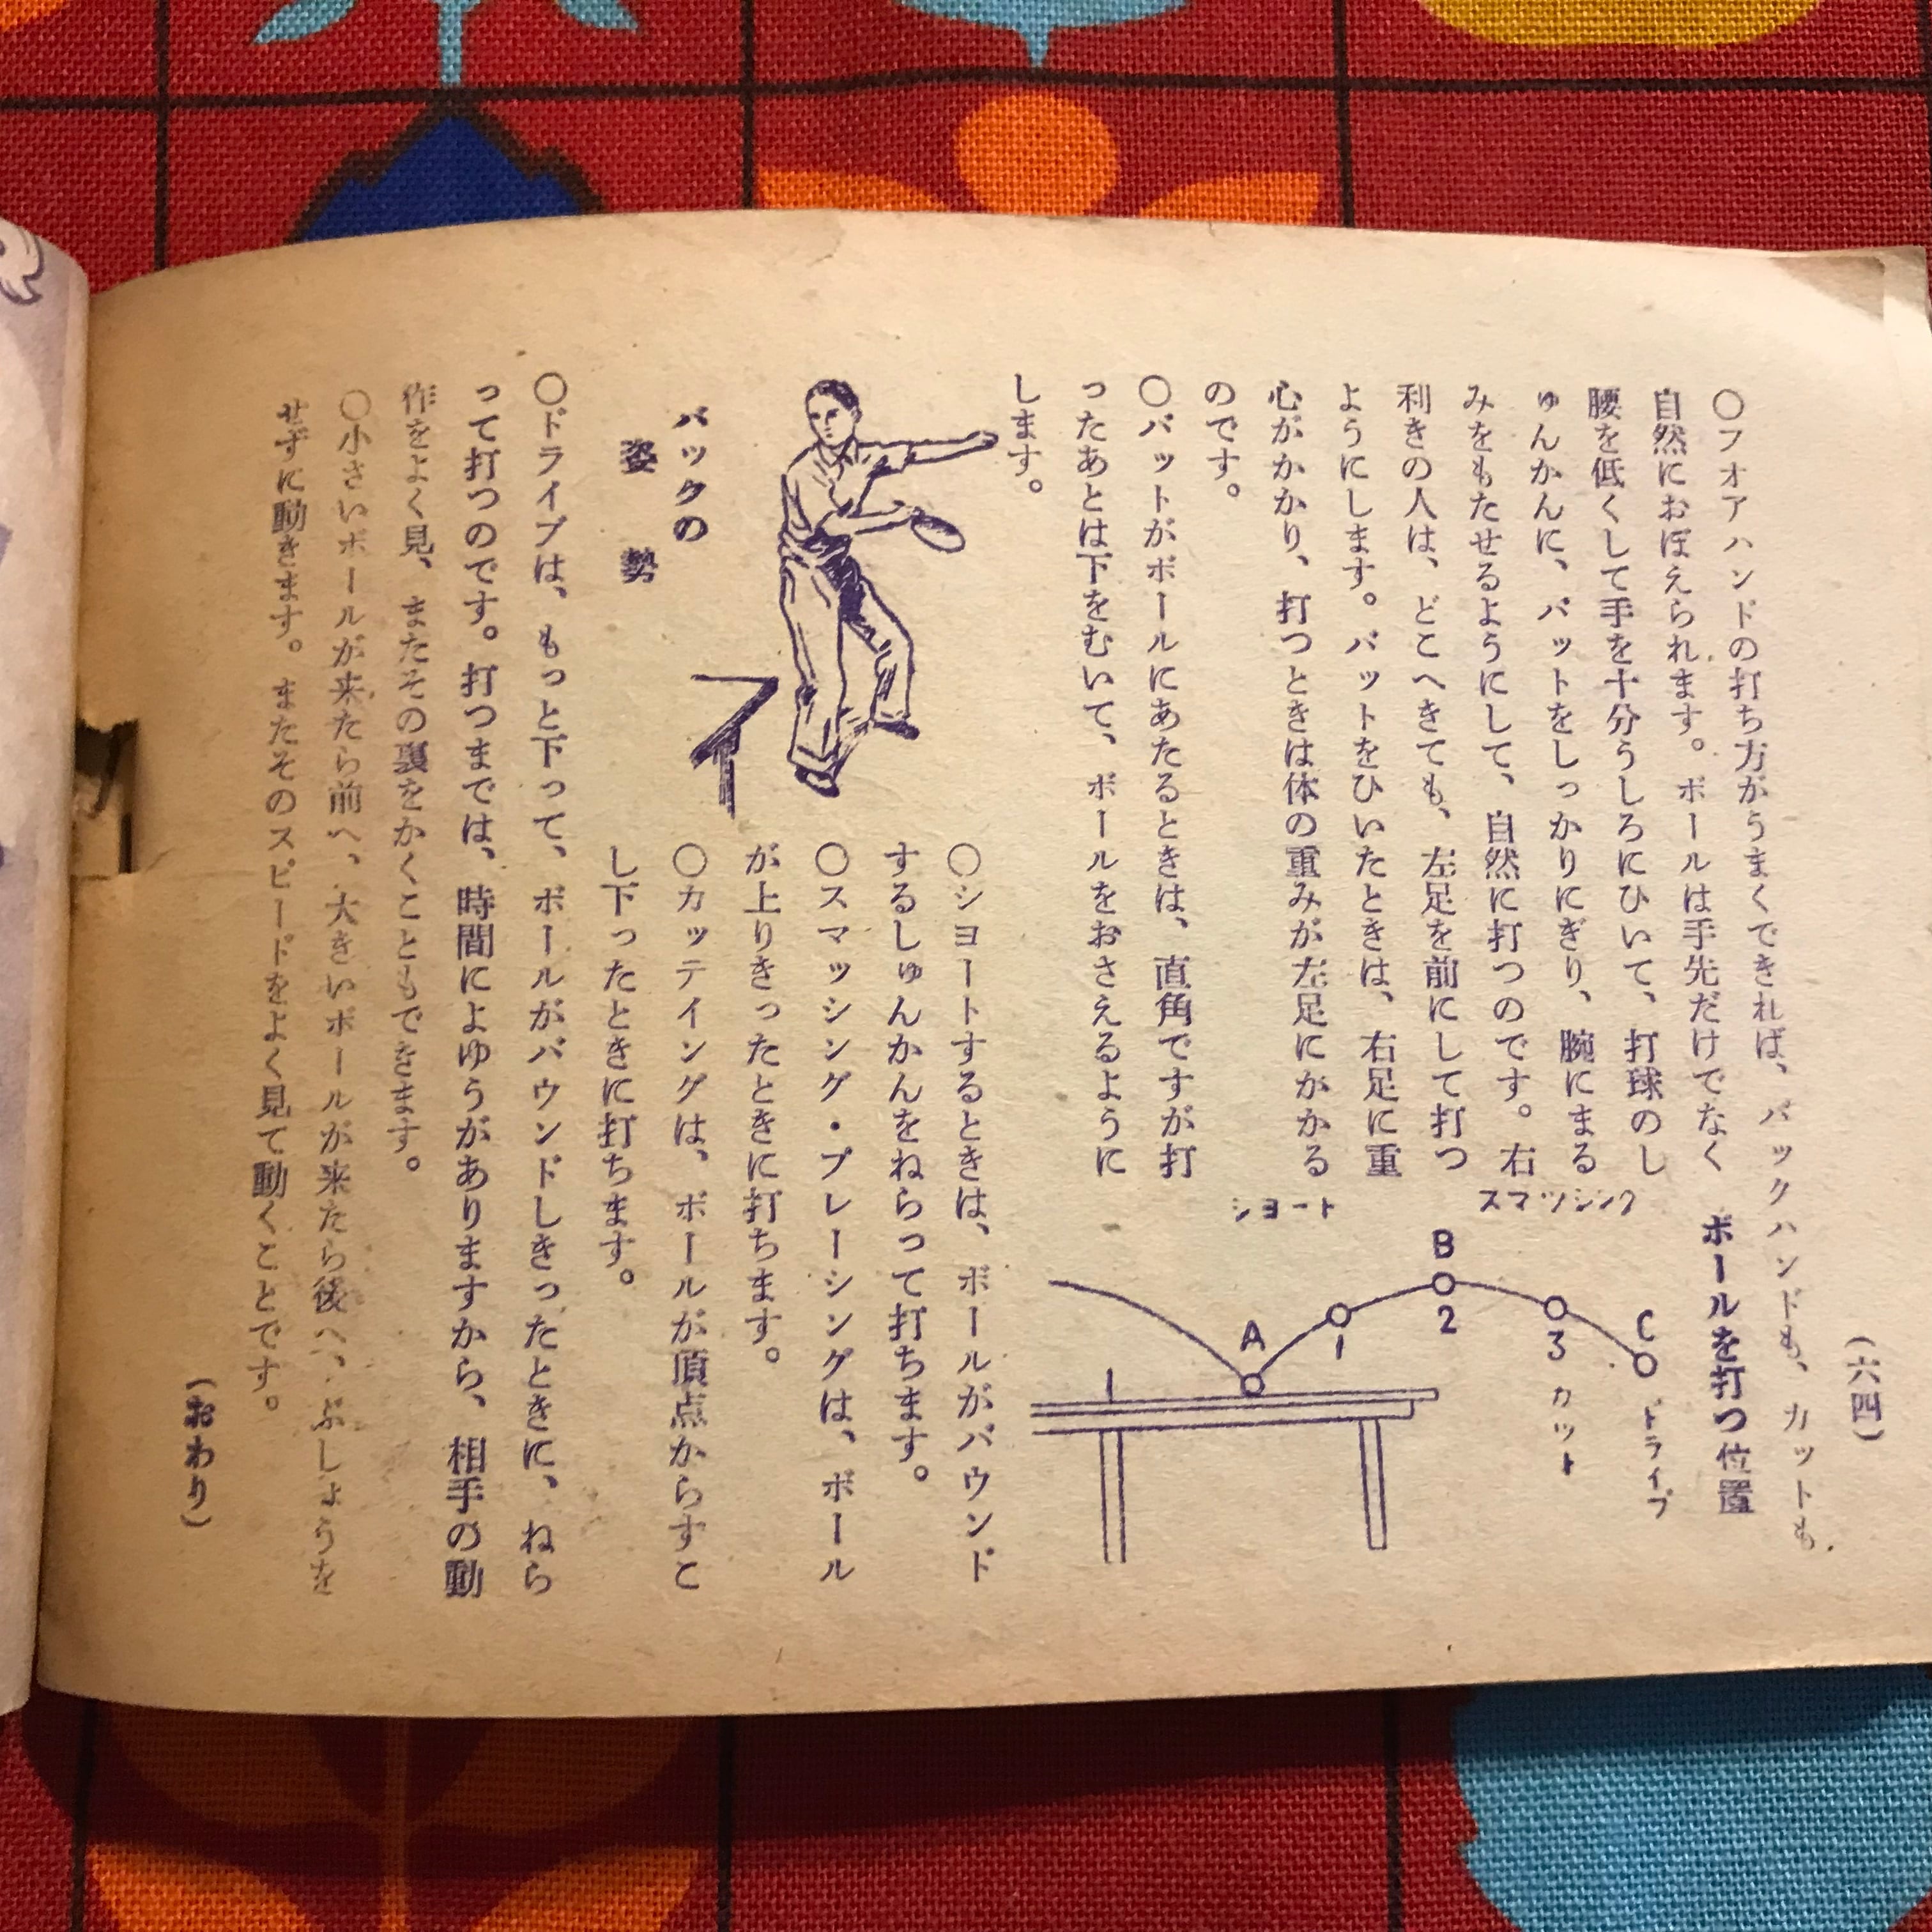 (六四)
〇フオアハンドの打ち方がうまくできれば、バックハンドも、カットも、
自然におぼえられます。ボールは手先だけでなく
腰を低くして手を十分うしろにひいて、打球のし
ゅんかんに、バットをしっかりにぎり、腕にまる
みをもたせるようにして、自然に打つのです。右
利きの人は、どこへきても、左足を前にして打つ
ようにします。バットをひいたときは、右足に重
心がかかり、打つときは体の重みが左足にかかる
のです。
〇バットがボールにあたるときは、直角ですが打
ったあとは下をむいて、ボールをおさえるように
します。
ボールを打つ位置
ドライブ
カット
スマツシング
ショート
C
3
B
2
1
A
バックの
姿勢
〇ショートするときは、ボールがバウンド
するしゅんかんをねらって打ちます。
〇スマッシング・プレーシングは、ボール
が上りきったときに打ちます。
〇カッテイングは、ボールが頂点からすこ
し下ったときに打ちます。
〇ドライブは、もっと下って、ボールがバウンドしきったときに、ねら
って打つのです。打つまでは、時間によゆうがありますから、相手の動
作をよく見、またその裏をかくこともできます。
〇小さいボールが来たら前へ、大きいボールが来たら後へ、ぶしょうを
せずに動きます。またそのスピードをよく見て動くことです。
(おわり)